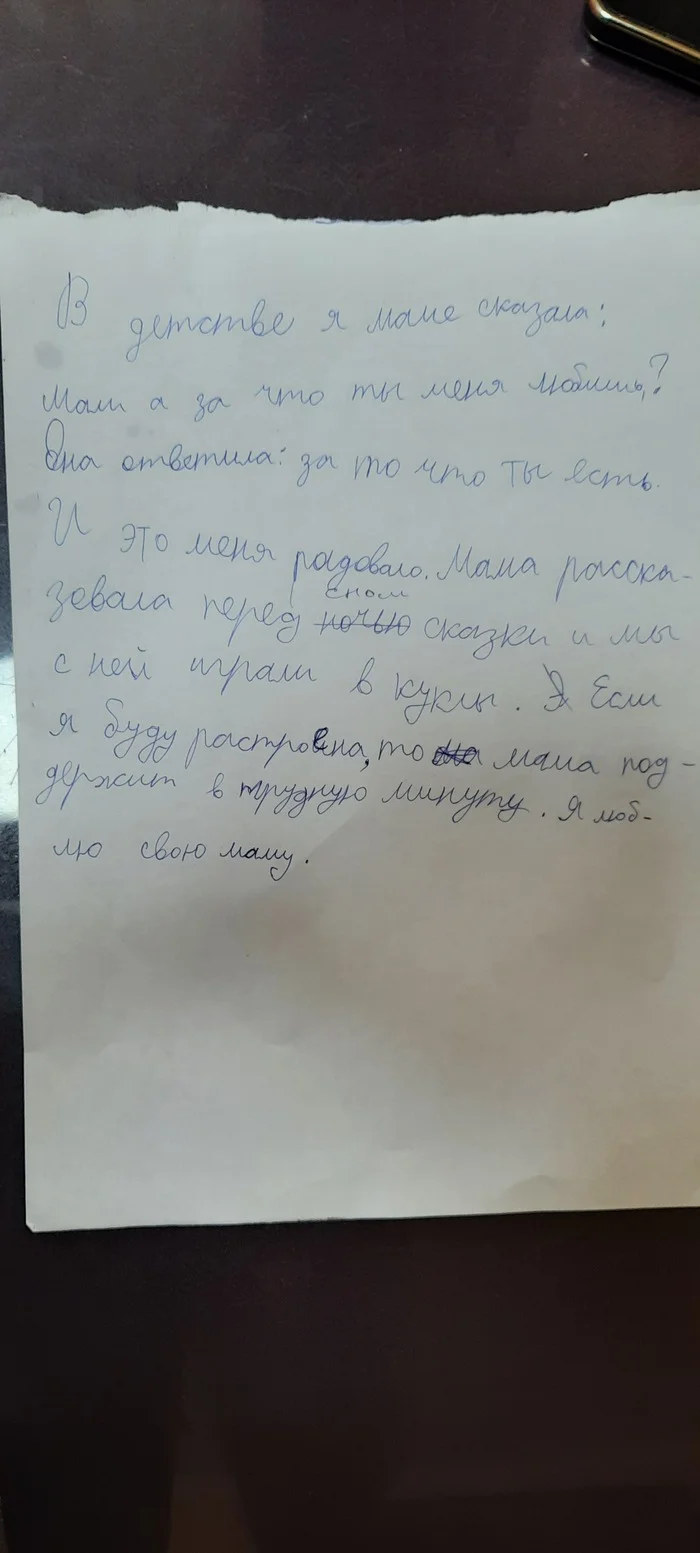 В детстве я маме сказала:
Мам а за что ты меня любишь?
Она ответила: за то что ты есть.
И это меня радовало. Мама расска-
зевала перед сном сказки и мы
с ней играли в куклы. Если
я буду растроена, то мама под-
держит в трудную минуту. Я люб-
лю свою маму.